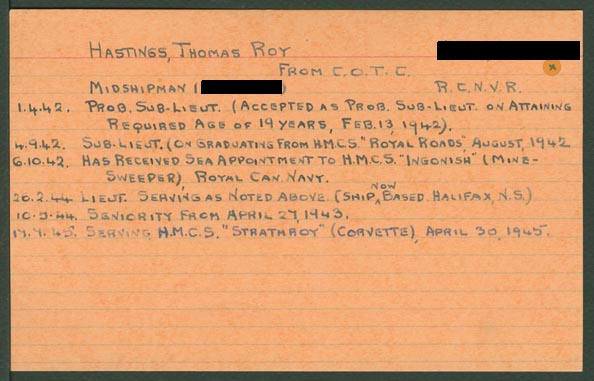 HASTINGS, THOMAS ROY
FROM C.O.T.C.
MIDSHIPMAN ( ) R.C.N.V.R.
1.4.42. PROB. SUB-LIEUT. (ACCEPTED AS PROB. SUB-LIEUT. ON ATTAINING
REQUIRED AGE OF 19 YEARS, FEB. 13, 1942).
4.9.42. SUB-LIEUT. (ON GRADUATING FROM H.M.C.S. "ROYAL ROADS" AUGUST, 1942
6.10.42. HAS RECEIVED SEA APPOINTMENT TO H.M.C.S. "INGONISH" (MINE-
SWEEPER), ROYAL CAN. NAVY.
20.2.44 LIEUT. SERVING AS NOTED ABOVE. (SHIP NOW BASED HALIFAX, N.S.)
10.3.44. SENIORITY FROM APRIL 27, 1943.
SERVING H.M.C.S. "STRATHROY" (CORVETTE), APRIL 30, 1945.